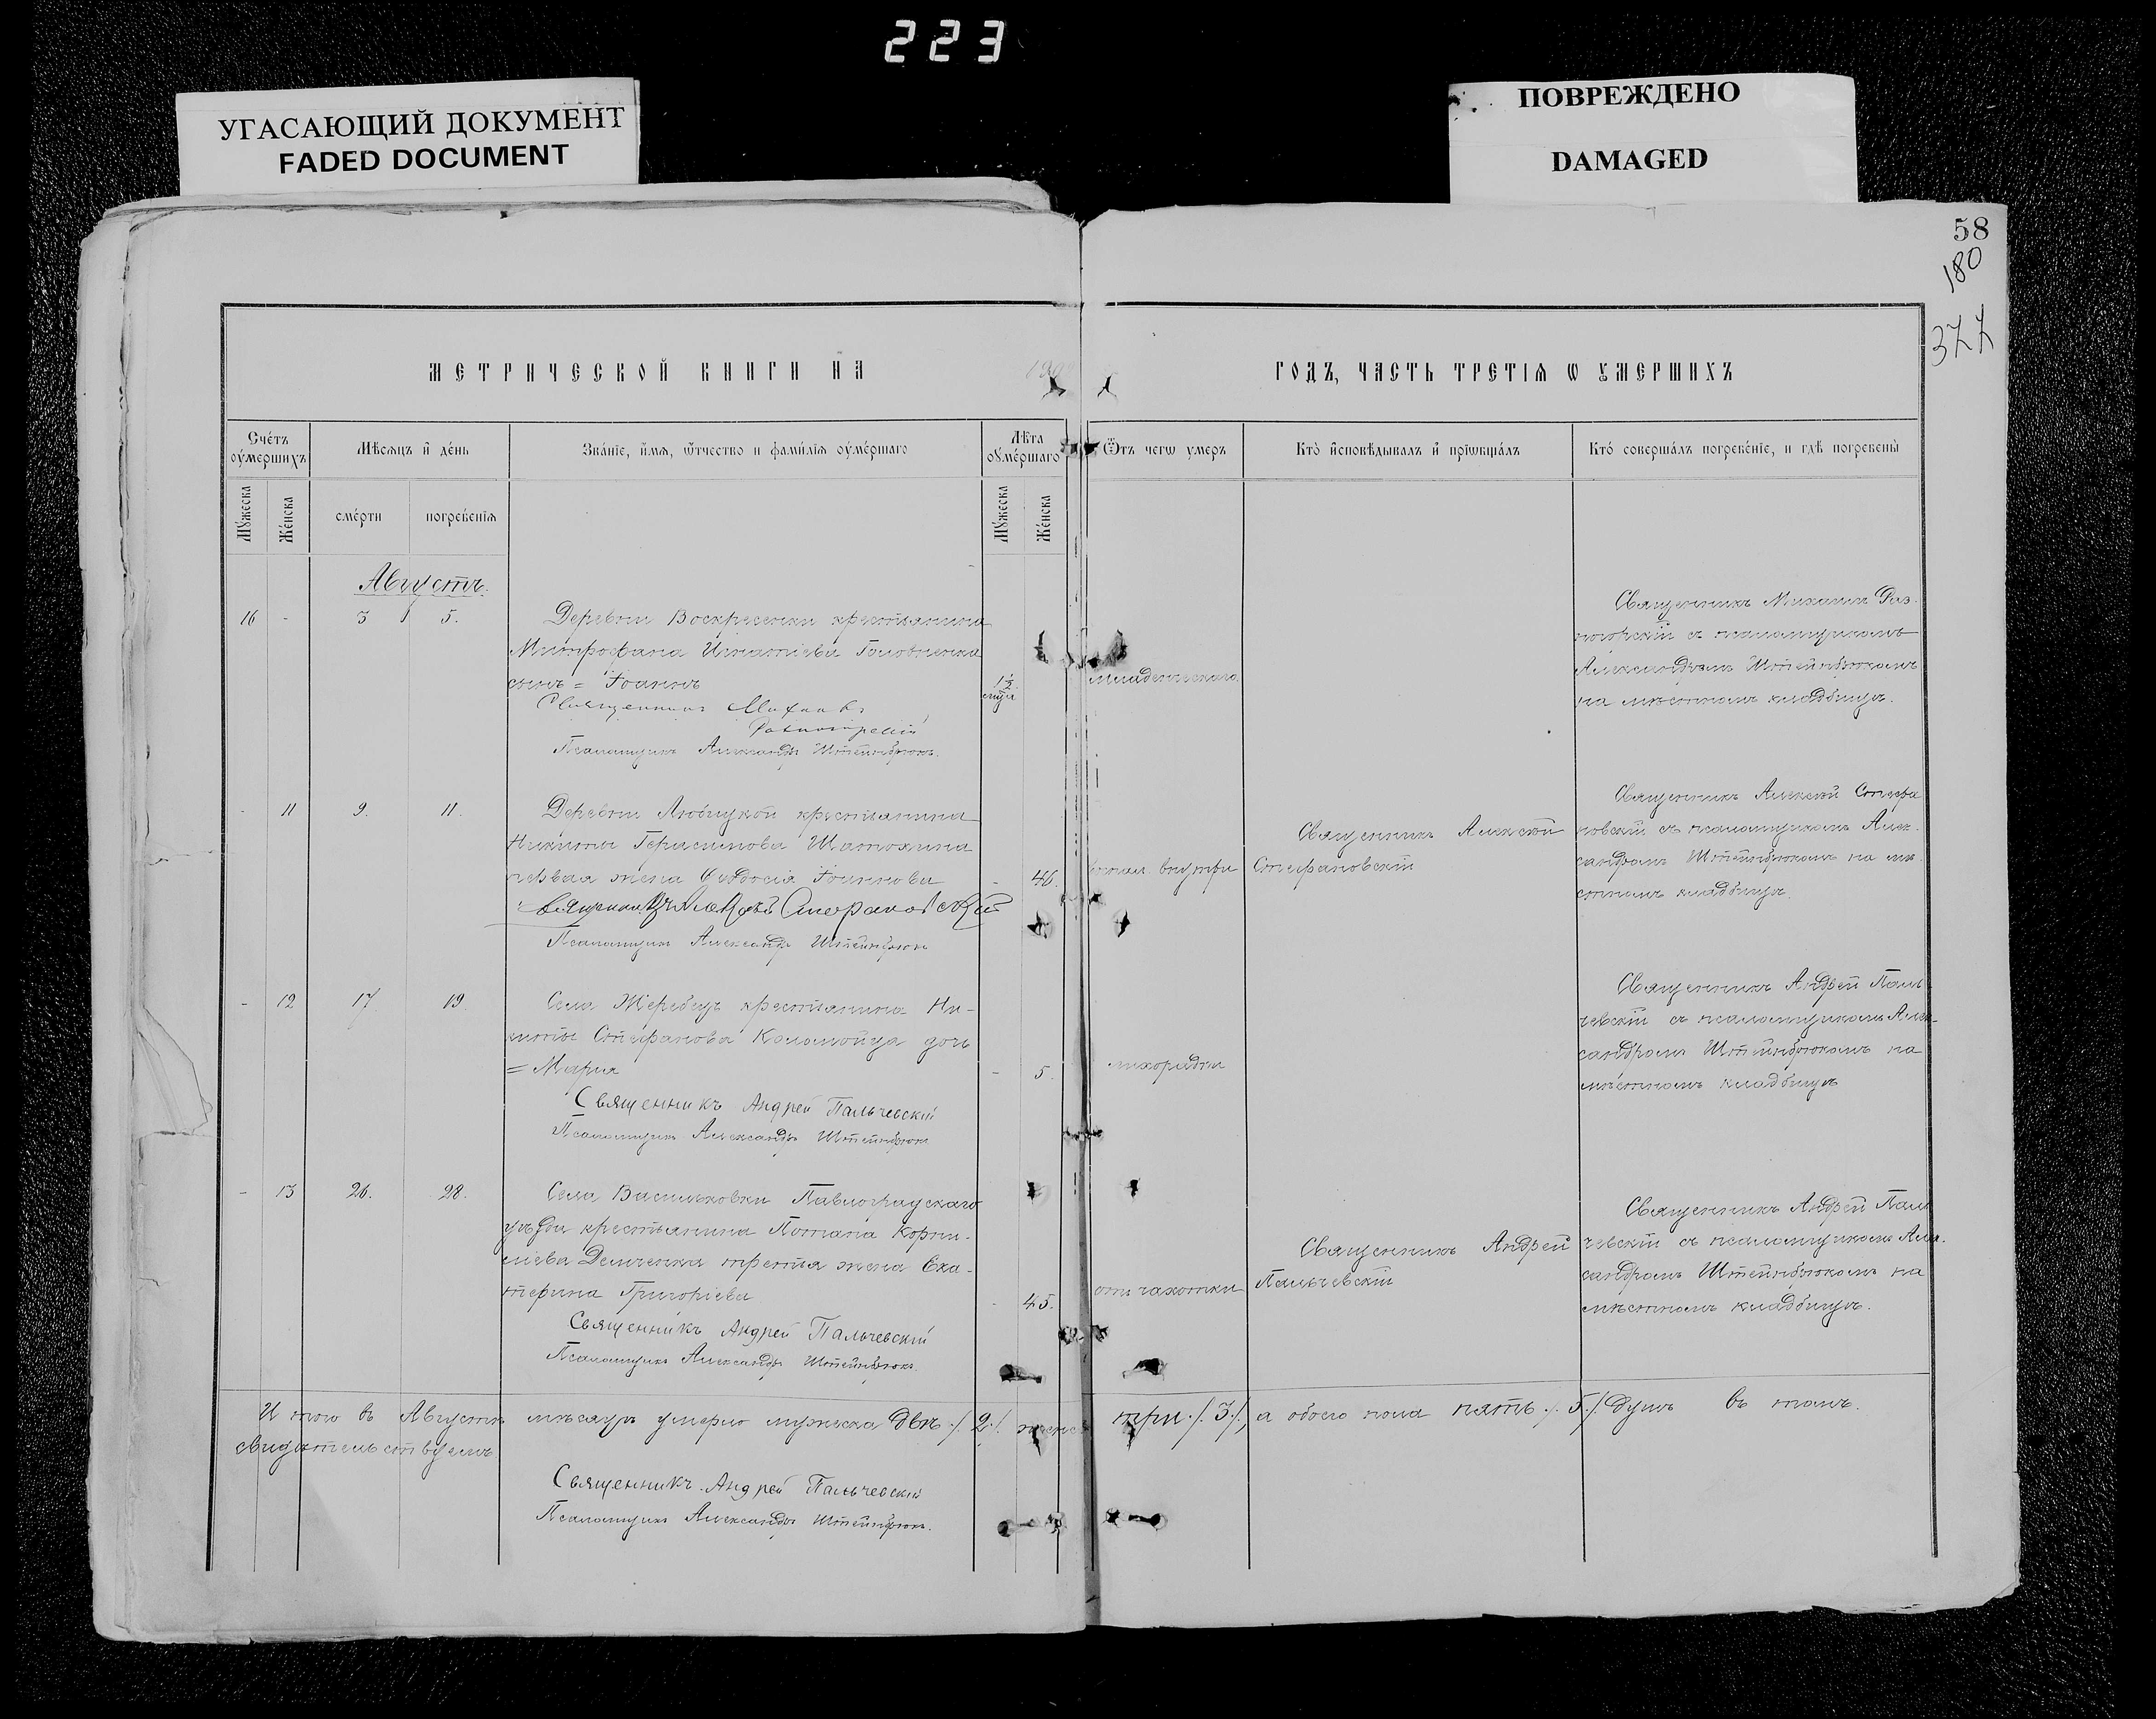 223
УГАСАЮЩИЙ ДОКУМЕНТ
FADED DOCUMENT
ПОВРЕЖДЕНО
DAMAGED
58
180
377
МЕТРИЧЕСКОЙ КНИГИ НА
ГОДЪ, ЧАСТЬ ТРЕТІѦ Ѡ УМЕРШИХЪ
Счéтъ оу҆мéршихъ
Мѣ́сяцъ и҆ дéнь
Звáнїе, и҆́мѧ, ѻ҆́тчество и фамѝлїѧ оу҆мéршаго
Лѣ̑та оу҆мéршаго
Ѿ чегѡ умеръ
Ктò и҆сповѣ́дывалъ и҆ прїѡбщáлъ
Ктó совершáлъ погребéнїе, и гдѣ̀ погребены̀
Мꙋ́жеска
Жéнска
смéрти
погребéнїѧ
Мꙋ́жеска
Жéнска
Августъ.
16 - 3 5.
Деревни Воскресенки крестьянина
Митрофана Игнатіева Головченка
сынъ = Іоаннъ
Священникъ Михаилъ
Разногорскій
Псаломщикъ Александръ Штейнбрюкъ.
1½
младенческаго
Священникъ Михаилъ Раз-
ногорскій съ псаломщикомъ
Александромъ Штейнбрюкомъ
на мѣстномъ кладбищѣ.
- 11 9. 11.
Деревни Любицкой крестьянина
Никиты Герасимова Шатохина
первая жена Ѳеодосія Іоаннова
Священникъ Алексѣй Стефановскій
Псаломщикъ Александръ Штейнбрюкъ
- 46.
внутри
Священникъ Алексѣй
Стефановскій
Священникъ Алексѣй Стефа
новскій съ псаломщикомъ Алек-
сандромъ Штейнбрюкомъ на мѣ-
стномъ кладбищѣ.
- 12 17 19.
Села Жеребецъ крестьянина Ни-
киты Стефанова Коломойца дочь
= Марія
Священникъ Андрей Пальчевскій
Псаломщикъ Александръ Штейнбрюкъ
- 5.
лихорадки
Священникъ Андрей Паль-
чевскій съ псаломщикомъ Алек-
сандромъ Штейнбрюкомъ на
мѣстномъ кладбищѣ
- 13 26. 28.
Села Васильковки Павлоградскаго
уѣзда крестьянина Потапа Корни-
ліева Демченка третья жена Ека-
терина Григоріева
Священникъ Андрей Пальчевскій
Псаломщикъ Александръ Штейнбрюкъ.
- 45.
отъ чахотки
Священникъ Андрей
Пальчевскій
Священникъ Андрей Паль
чевскій съ псаломщикомъ Алек-
сандромъ Штейнбрюкомъ на
мѣстномъ кладбищѣ.
И того въ Августѣ мѣсяцѣ умерло мужеска двѣ ./. 2 ./. женска три ./. 3 ./., а обоего пола пять ./. 5 ./. душъ въ томъ.
свидѣтельствуемъ
Священникъ Андрей Пальчевскій
Псаломщикъ Александръ Штейнбрюкъ.